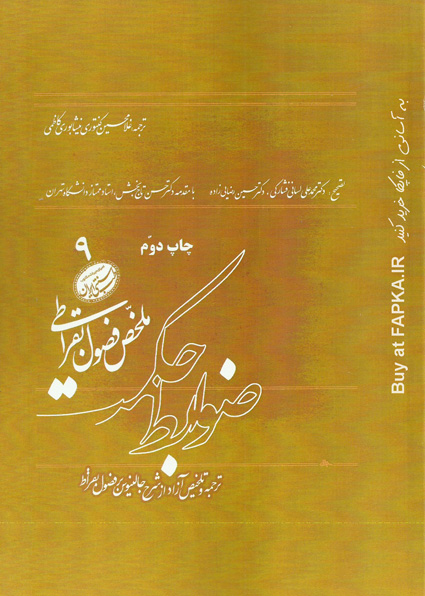 ترجمه: غلامحسین کنتوری نیشابوری کاظمی
تصحیح: دکتر محمدعلی لسانی فشارکی، دکتر حسین رضایی‌زاده
با مقدمه دکتر حسن تاج‌بخش، استاد ممتاز دانشگاه تهران
چاپ دوّم
۹
ملخّص فصول بقراطی
ضوابط حکمت
ترجمه و تلخیص آزاد از شرح جالینوس بر فصول بقراط
به آسانی از فاپکا خرید کنید
Buy at FAPKA.IR